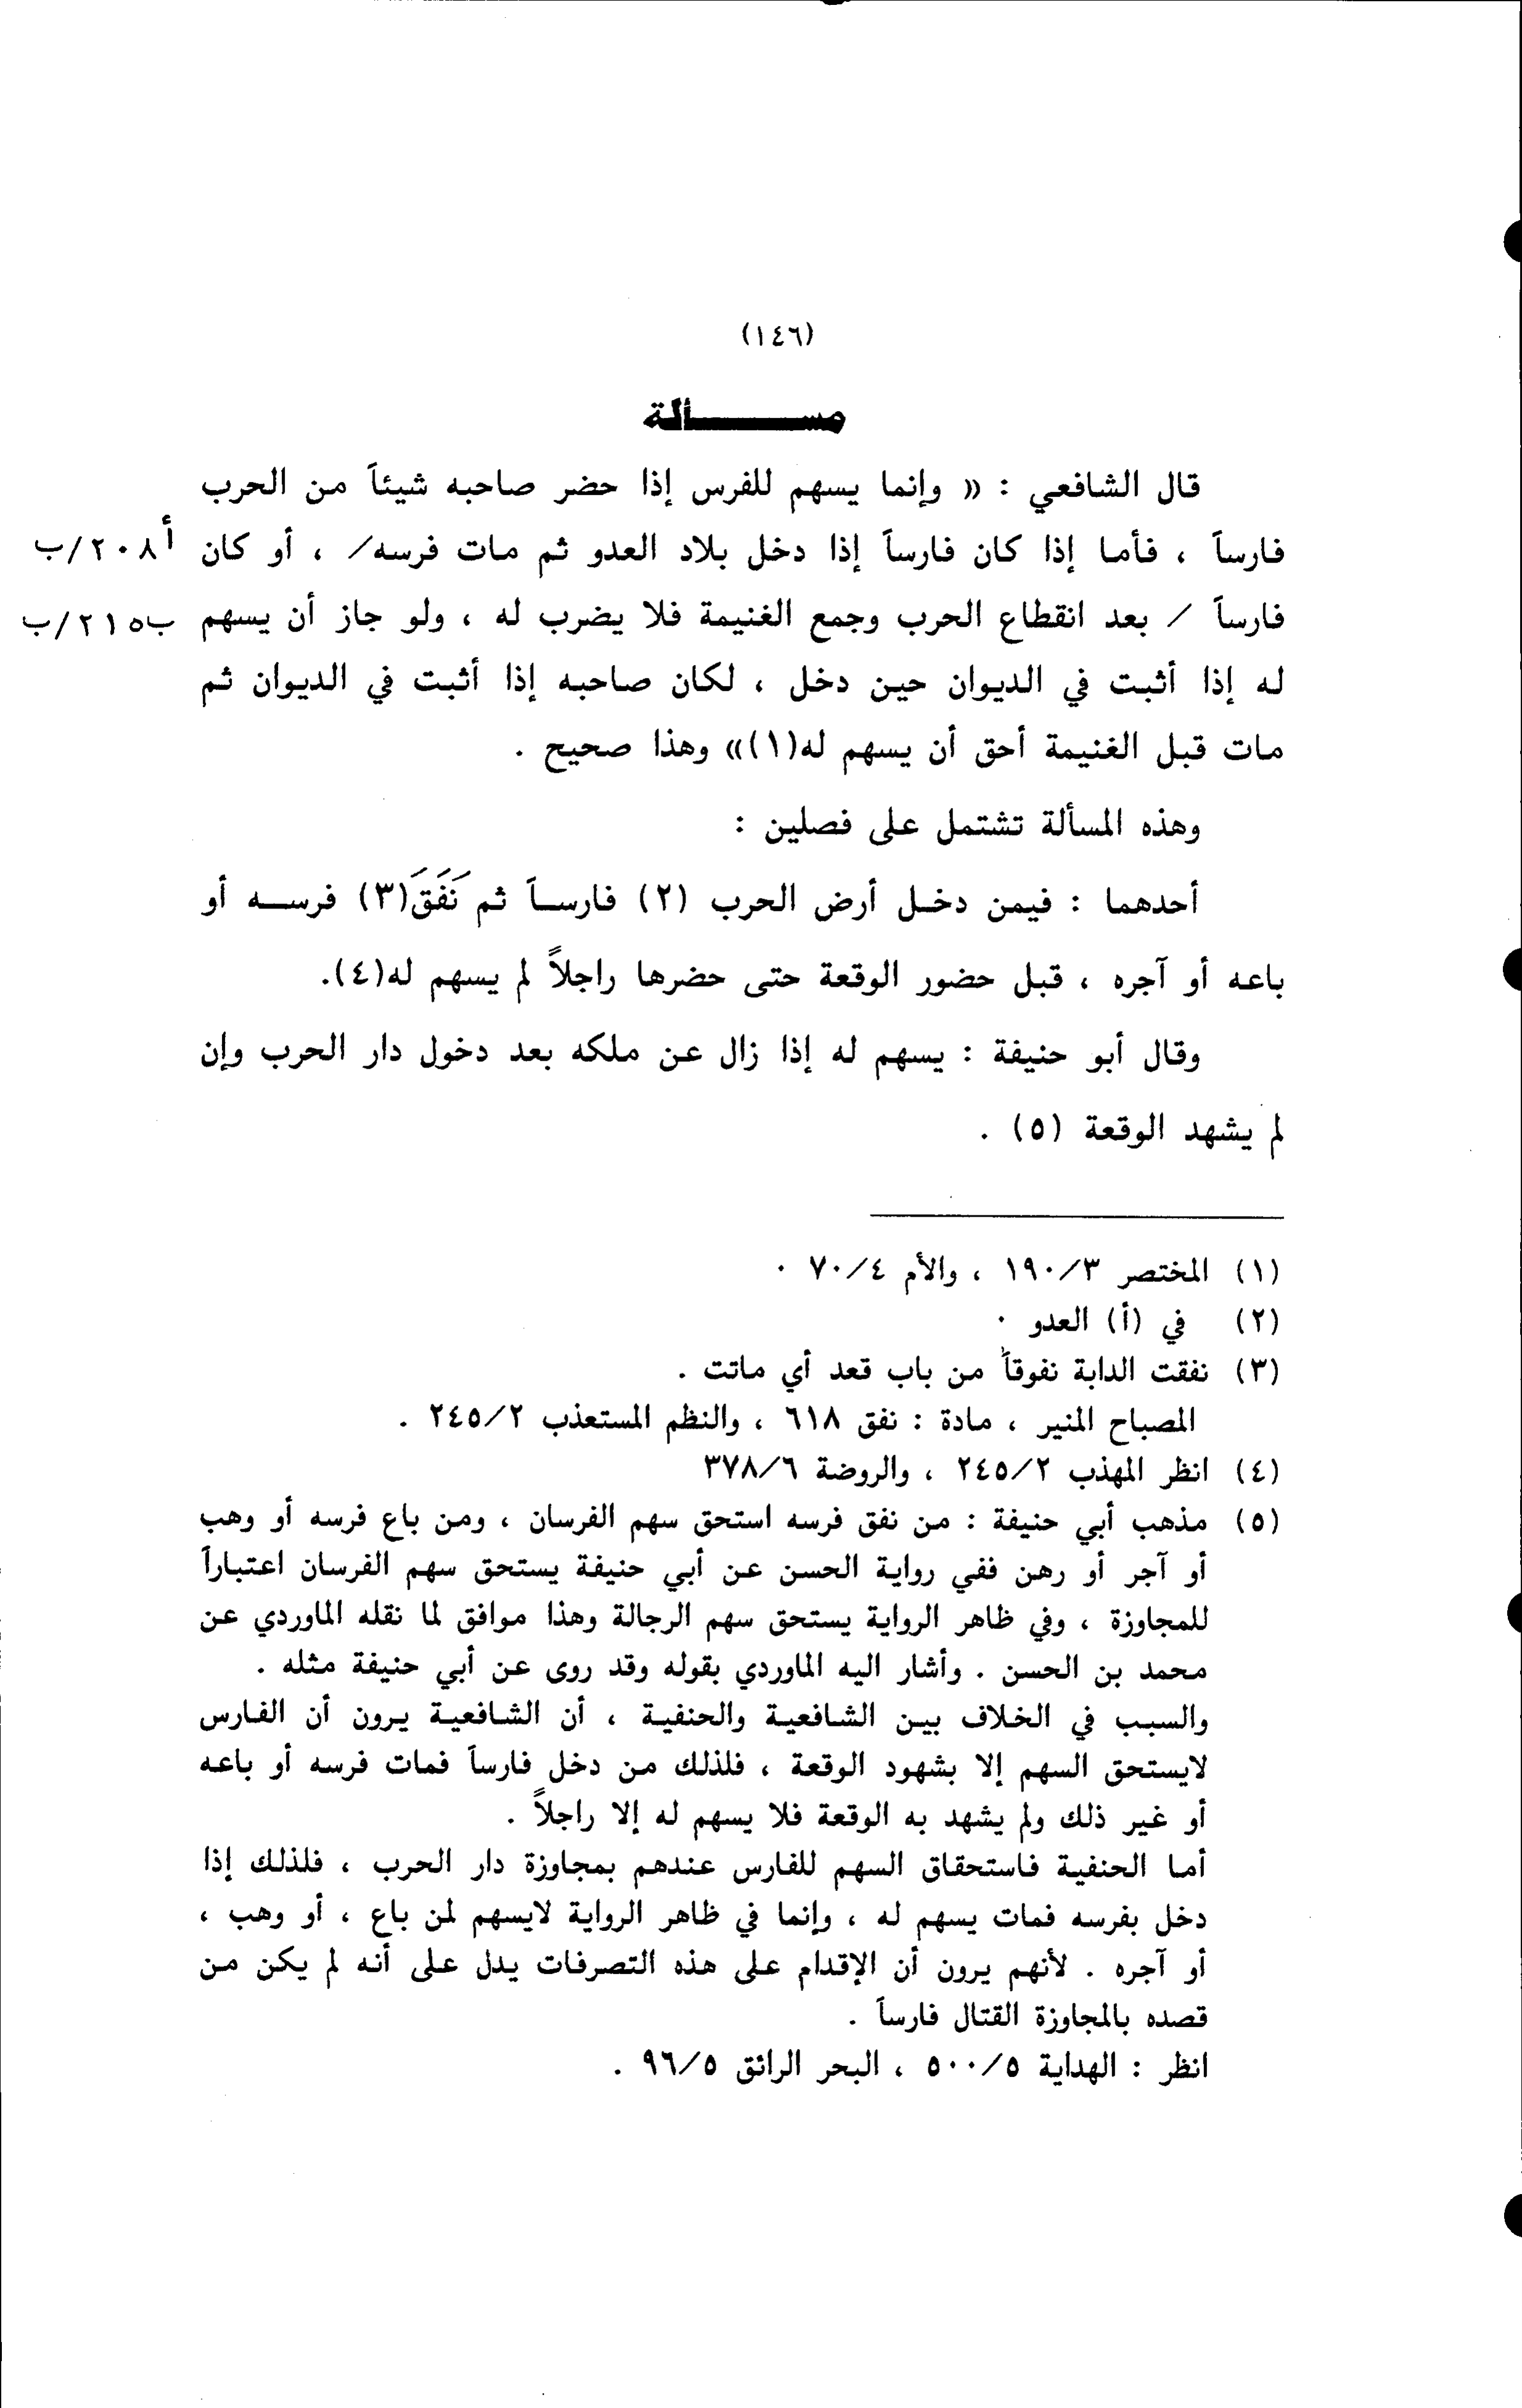 (١٤٦)
مســـــألة
قال الشافعي : « وإنما يسهم للفرس إذا حضر صاحبه شيئاً من الحرب
فارساً ، فأما إذا كان فارساً إذا دخل بلاد العدو ثم مات فرسه/ ، أو كان أ٢٠٨/ب
فارساً / بعد انقطاع الحرب وجمع الغنيمة فلا يضرب له ، ولو جاز أن يسهم ب٢١٥/ب
له إذا أثبت في الديوان حين دخل ، لكان صاحبه إذا أثبت في الديوان ثم
مات قبل الغنيمة أحق أن يسهم له(١)» وهذا صحيح .
وهذه المسألة تشتمل على فصلين :
أحدهما : فيمن دخل أرض الحرب (٢) فارساً ثم نَفَقَ(٣) فرســه أو
باعه أو آجره ، قبل حضور الوقعة حتى حضرها راجلاً لم يسهم له(٤).
وقال أبو حنيفة : يسهم له إذا زال عن ملكه بعد دخول دار الحرب وإن
لم يشهد الوقعة (٥) .
(١) المختصر ١٩٠/٣ ، والأم ٧٠/٤ .
(٢) في (أ) العدو .
(٣) نفقت الدابة نفوقاً من باب قعد أي ماتت .
المصباح المنير ، مادة : نفق ٦١٨ ، والنظم المستعذب ٢٤٥/٢ .
(٤) انظر المهذب ٢٤٥/٢ ، والروضة ٣٧٨/٦
(٥) مذهب أبي حنيفة : من نفق فرسه استحق سهم الفرسان ، ومن باع فرسه أو وهب
أو آجر أو رهن ففي رواية الحسن عن أبي حنيفة يستحق سهم الفرسان اعتباراً
للمجاوزة ، وفي ظاهر الرواية يستحق سهم الرجالة وهذا موافق لما نقله الماوردي عن
محمد بن الحسن . وأشار اليه الماوردي بقوله وقد روى عن أبي حنيفة مثله .
والسبب في الخلاف بين الشافعية والحنفية ، أن الشافعية يرون أن الفارس
لايستحق السهم إلا بشهود الوقعة ، فلذلك من دخل فارساً فمات فرسه أو باعه
أو غير ذلك ولم يشهد به الوقعة فلا يسهم له إلا راجلاً .
أما الحنفية فاستحقاق السهم للفارس عندهم بمجاوزة دار الحرب ، فلذلك إذا
دخل بفرسه فمات يسهم له ، وإنما في ظاهر الرواية لايسهم لمن باع ، أو وهب ،
أو آجره . لأنهم يرون أن الإقدام على هذه التصرفات يدل على أنه لم يكن من
قصده بالمجاوزة القتال فارساً .
انظر : الهداية ٥٠٠/٥ ، البحر الرائق ٩٦/٥ .